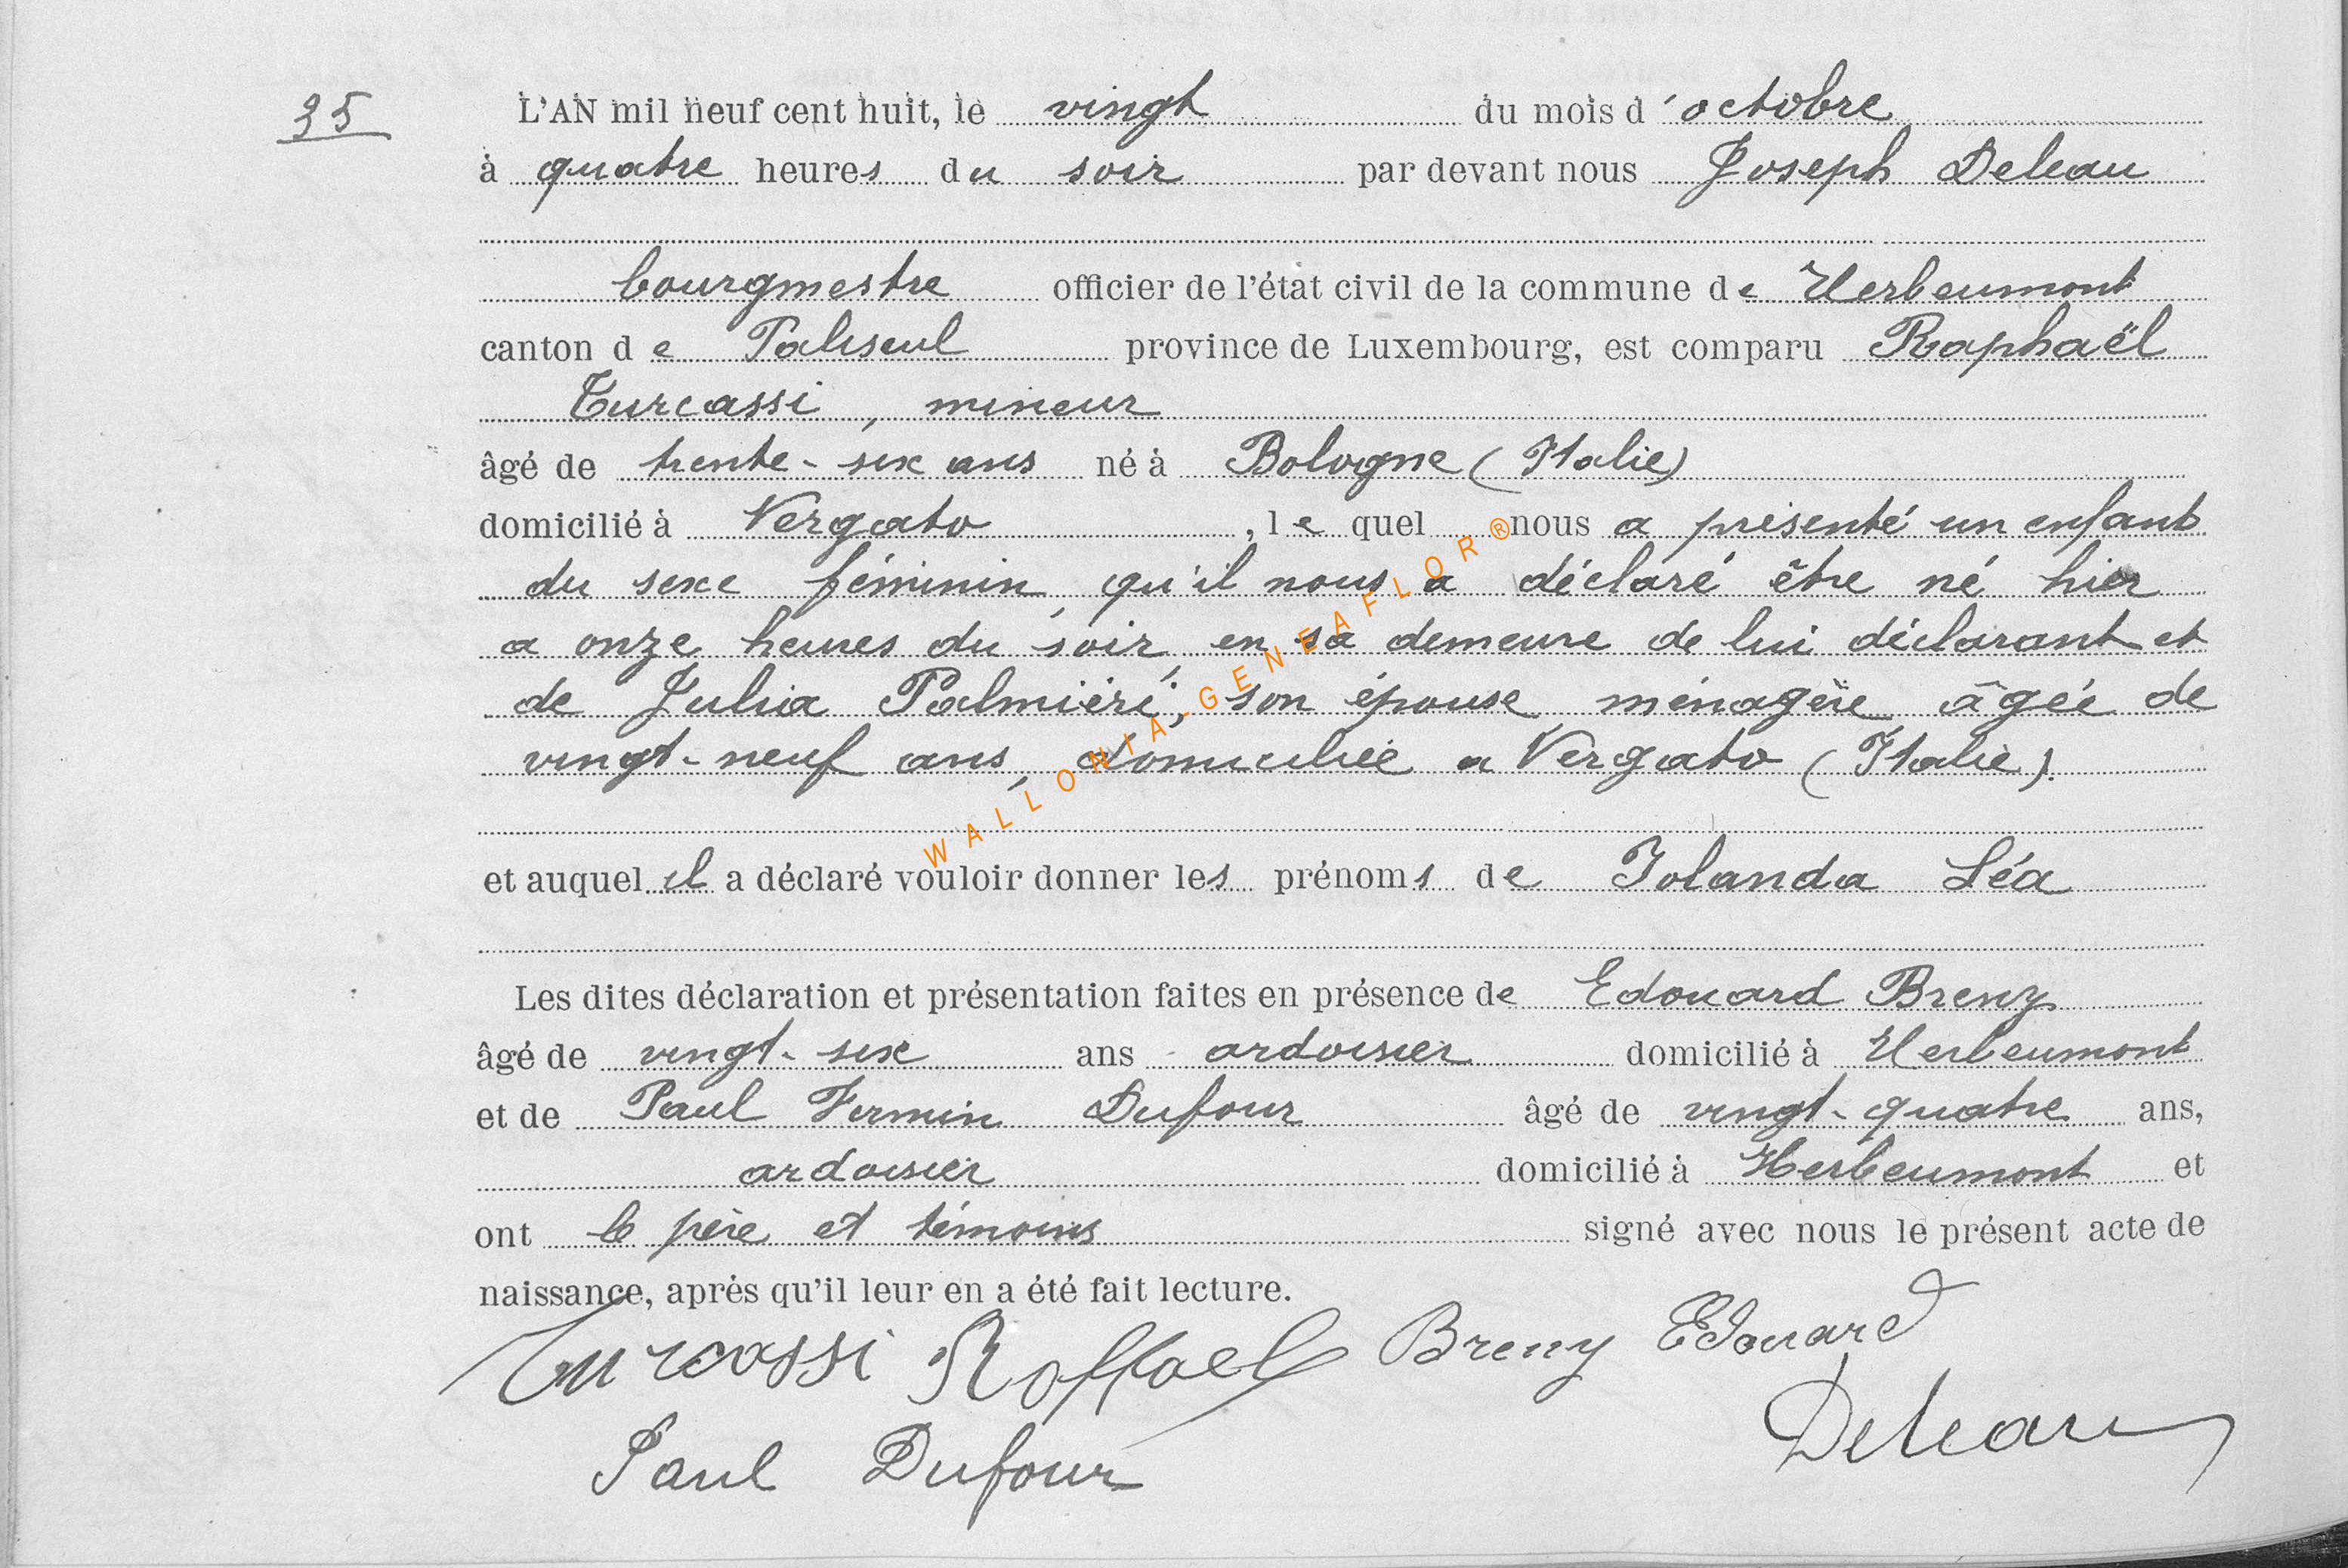 35
L'AN mil neuf cent huit, le vingt du mois d'octobre
à quatre heures du soir par devant nous Joseph Deleau
bourgmestre officier de l'état civil de la commune de Herbeumont
canton de Paliseul province de Luxembourg, est comparu Raphaël
Turcassi, mineur
âgé de trente-six ans né à Bologne (Italie)
domicilié à Vergato, lequel nous a présenté un enfant
du sexe féminin, qu'il nous a déclaré être né hier
a onze heures du soir, en sa demeure de lui déclarant et
de Julia Palmiéri, son épouse ménagère âgée de
vingt-neuf ans, domiciliée a Vergato (Italie).
et auquel il a déclaré vouloir donner les prénoms de Iolanda Léa
Les dites déclaration et présentation faites en présence de Edouard Breny
âgé de vingt-six ans ardoisier domicilié à Herbeumont
et de Paul Firmin Dufour âgé de vingt-quatre ans,
ardoisier domicilié à Herbeumont et
ont le père et témoins signé avec nous le présent acte de
naissance, après qu'il leur en a été fait lecture.
Turcassi Raffael Breny Edouard
Paul Dufour Deleau
WALLONIA-GENEAFLOR®